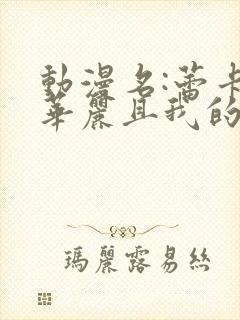 動漫名:蕾卡
華麗且我的
瑪麗露易絲